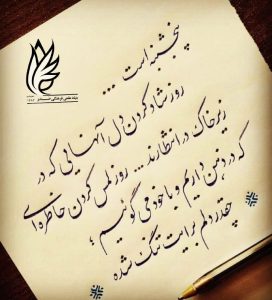 پنجشنبه است ...
روز شاد کردن دل آنهایی که در
زیر خاک در انتظارند ... روز لمس کردن خاطره ای
که در ذهن داریم و با خود می گوئیم ؛
چقدر دلم برایت تنگ شده
بنیاد علمی فرهنگی